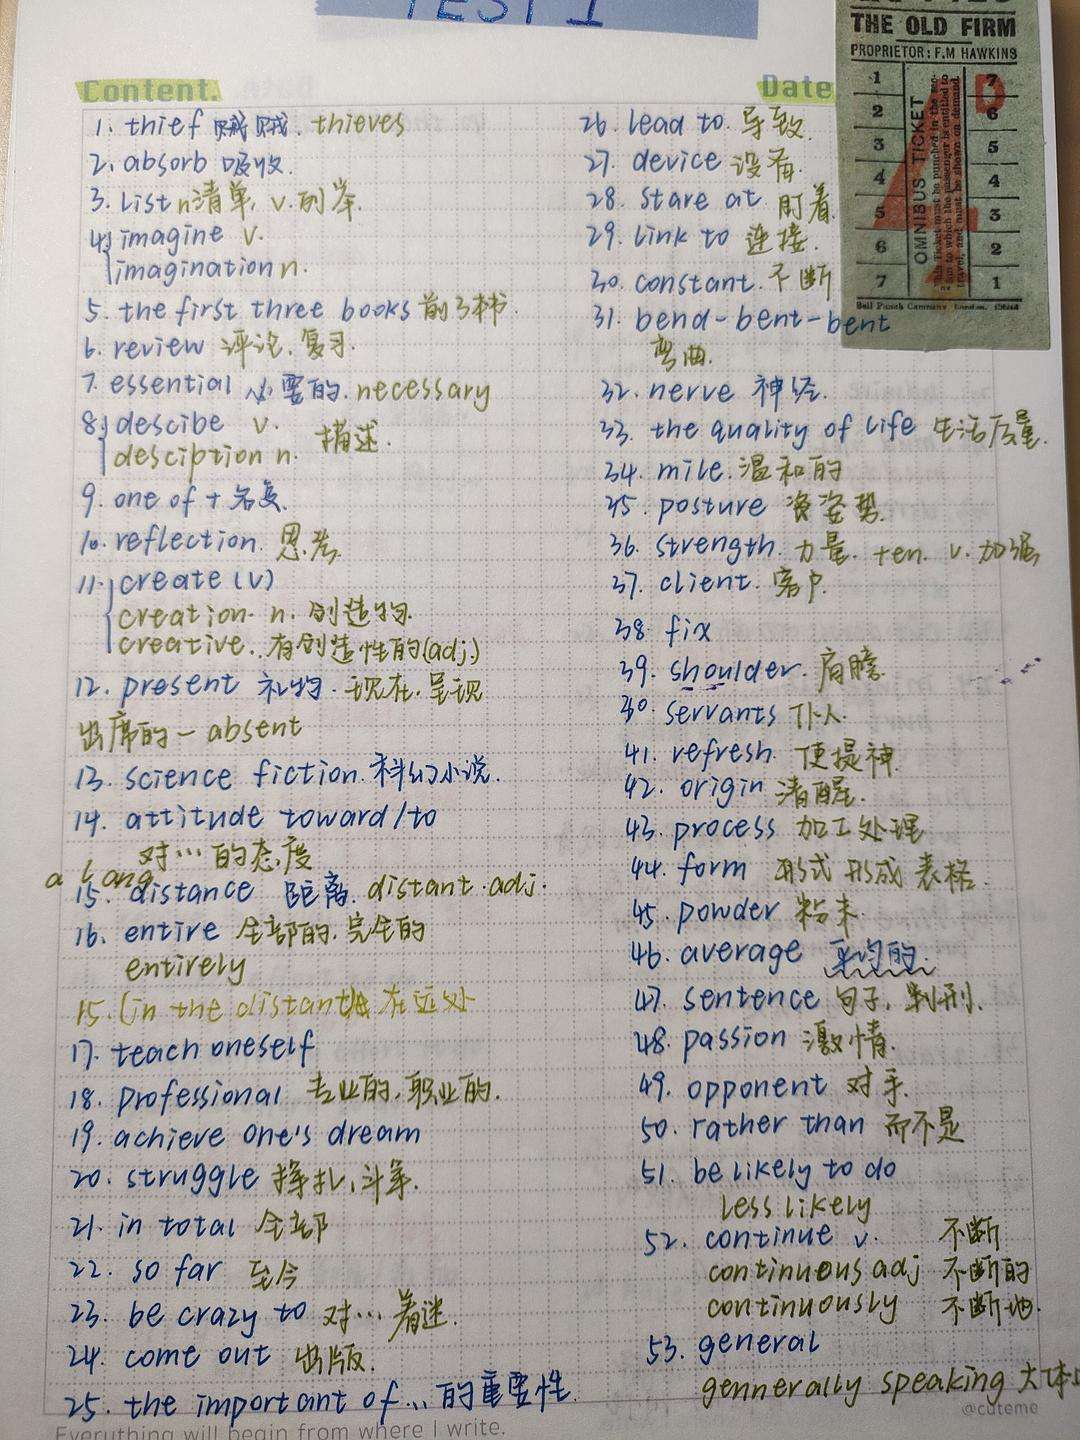 TEST 1
THE OLD FIRM
PROPRIETOR: F.M HAWKINS
1 7
2 6
3 5
4 4
5 3
6 2
7 1
OMNIBUS TICKET
Bell Punch Company, London.
Content.
1. thief 贼. thieves
2. absorb 吸收.
3. List n清单, v. 列举.
4. imagine v.
imagination n.
5. the first three books 前3本书.
6. review 评论. 复习.
7. essential 必要的. necessary
8. descibe v.
desciption n. 描述.
9. one of + 名复.
10. reflection 思考
11. create (v)
creation. n. 创造物.
creative. 有创造性的(adj.)
12. present 礼物. 现在. 呈现
出席的 — absent
13. science fiction. 科幻小说.
14. attitude toward/to
对…的态度
15. distance 距离. distant. adj.
16. entire 全部的. 完全的
entirely
15. (in the distant 在远处
17. teach oneself
18. professional 专业的. 职业的.
19. achieve one's dream
20. struggle 挣扎, 斗争.
21. in total 全部
22. so far 至今
23. be crazy to 对…着迷.
24. come out 出版.
25. the important of ... 的重要性.
Date
26. lead to. 导致.
27. device 设备.
28. stare at 盯着
29. link to 连接.
30. constant. 不断
31. bend-bent-bent
弯曲.
32. nerve 神经.
33. the quality of life 生活质量.
34. mile. 温和的
35. posture 姿势.
36. strength. 力量. +en. v. 加强
37. client. 客户.
38. fix
39. shoulder. 肩膀.
40. servants 仆人.
41. refresh. 使提神
42. origin 清醒.
43. process 加工处理
44. form 形式 形成 表格.
45. powder 粉末.
46. average 平均的.
47. sentence 句子, 判刑.
48. passion 激情.
49. opponent 对手.
50. rather than 而不是
51. be likely to do
less likely
52. continue v. 不断
continuous adj 不断的
continuously 不断地.
53. general
gennerally speaking 大体
@cuteme
Everything will begin from where I write.